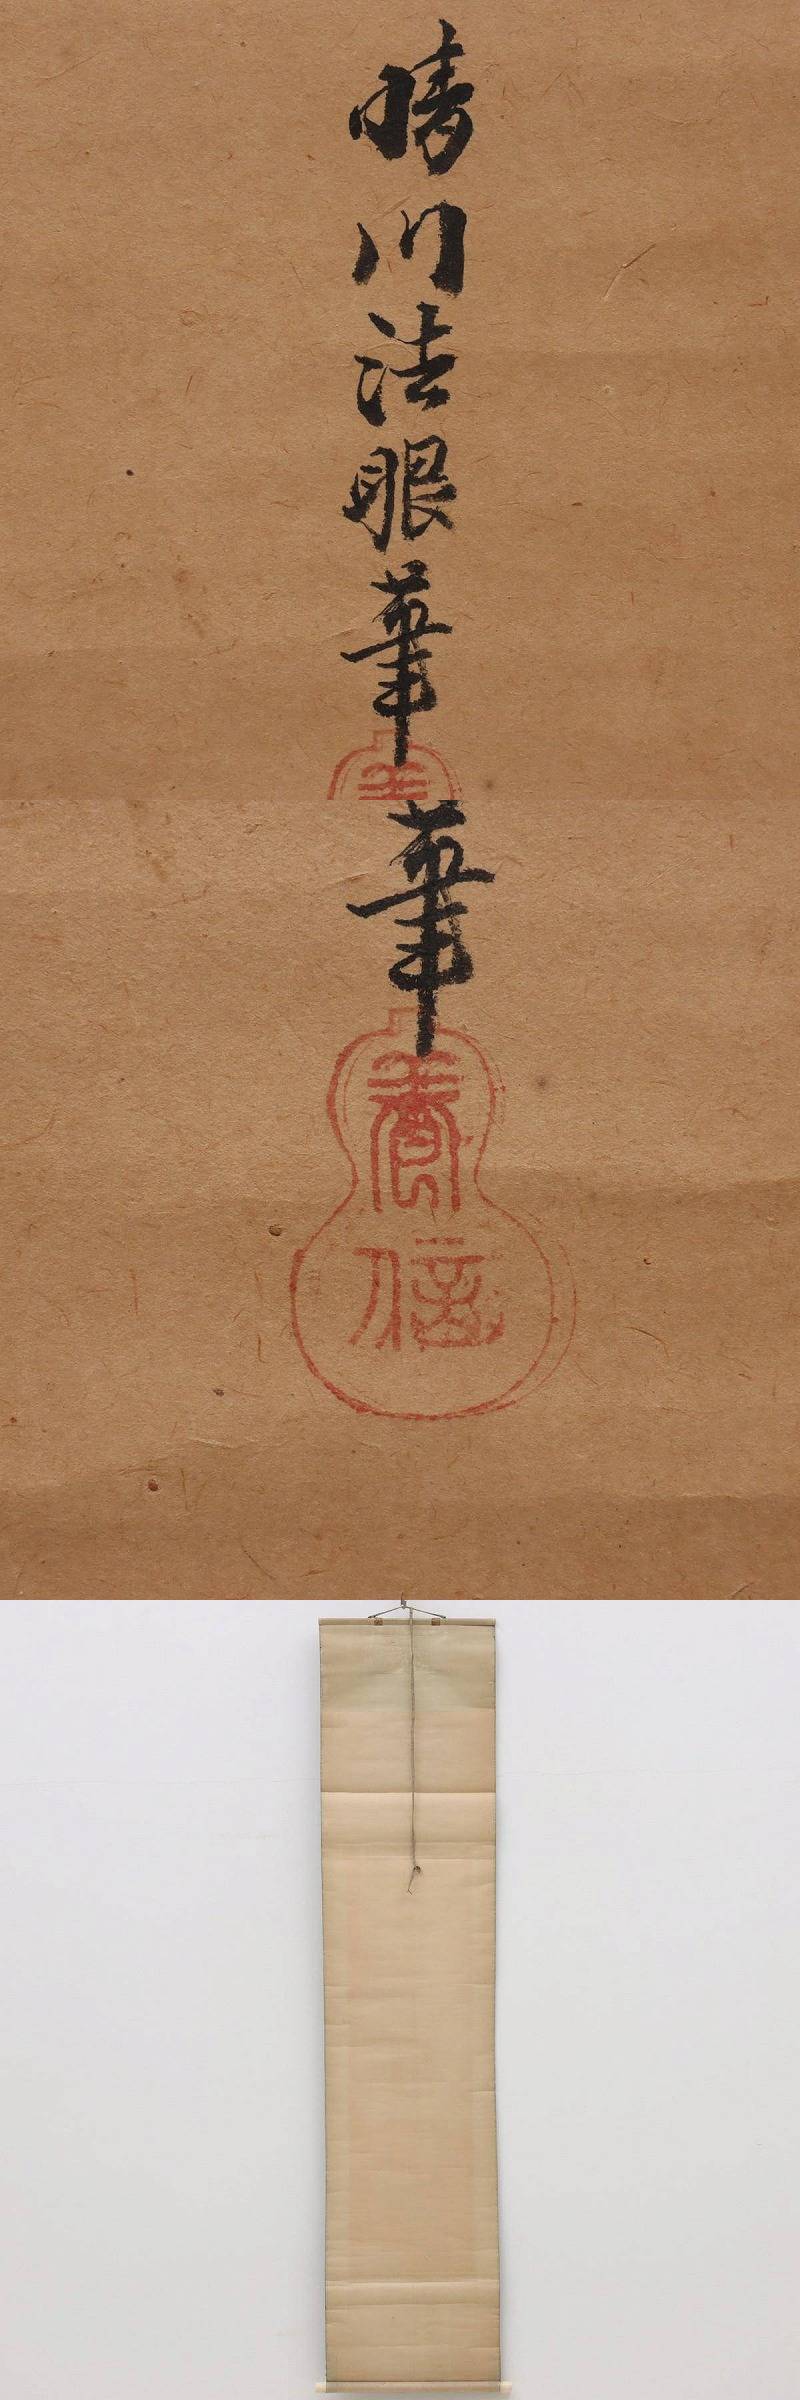 晴川法眼筆
筆
養信